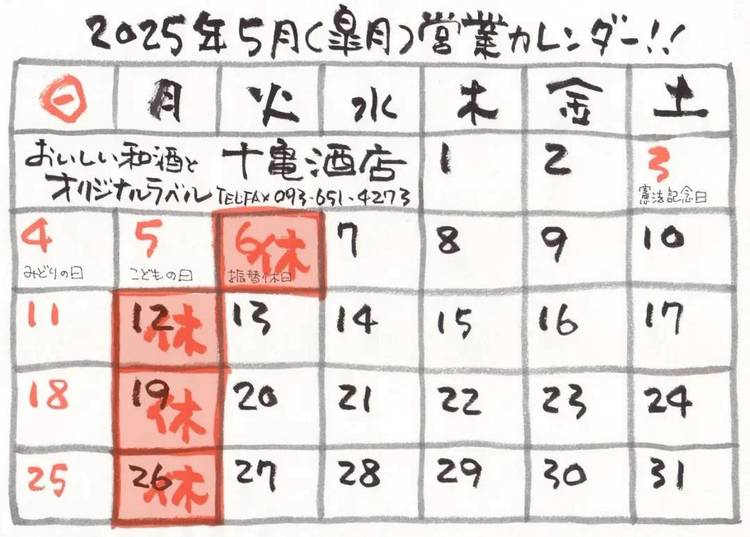 2025年5月(皐月)営業カレンダー!!
日 月 火 水 木 金 土
おいしい和酒と 十亀酒店
オリジナルラベル TEL.FAX 093-651-4273
1 2 3
憲法記念日
4 5 6休 7 8 9 10
みどりの日 こどもの日 振替休日
11 12休 13 14 15 16 17
18 19休 20 21 22 23 24
25 26休 27 28 29 30 31